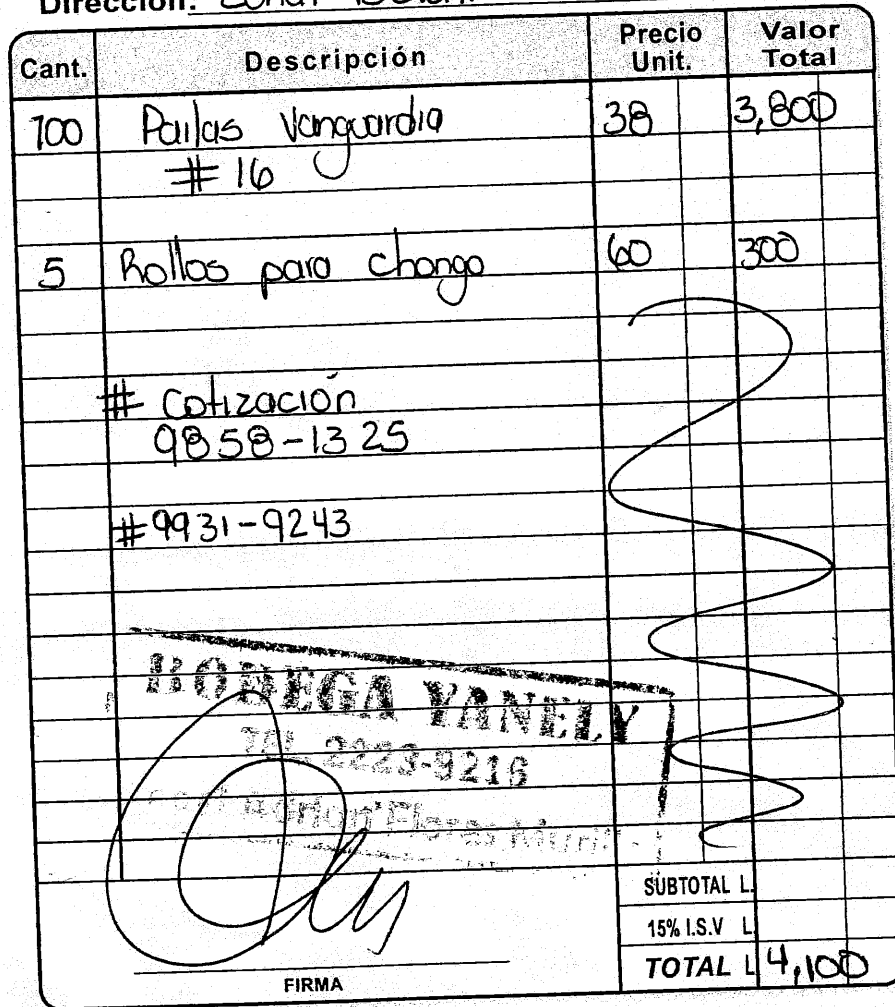 Dirección:
Cant. Descripción Precio Unit. Valor Total
100 Pailas Vanguardia 38 3,800
# 16
5 Rollos para chongo 60 300
# Cotización
9858-1325
#9931-9243
BODEGA YANELY
TEL 2223-9216
Flores
SUBTOTAL L.
15% I.S.V L
TOTAL L 4,100
FIRMA